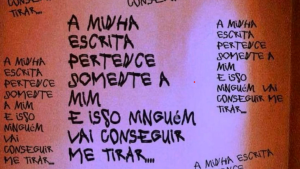 TIRAR...
A MINHA
ESCRITA
PERTENCE
SOMENTE A
MIM
E ISSO
NINGUÉM
VAI
CONSEGUIR
ME TIRAR...
A MINHA
ESCRITA
PERTENCE
SOMENTE A
MIM
E ISSO NINGUÉM
VAI CONSEGUIR
ME TIRAR...
A MINHA
ESCRITA
PERTENCE
SOMENTE A
MIM
E ISSO
NINGUÉM VAI
CONSEGUIR ME
TIRAR...
A MINHA ESCRITA